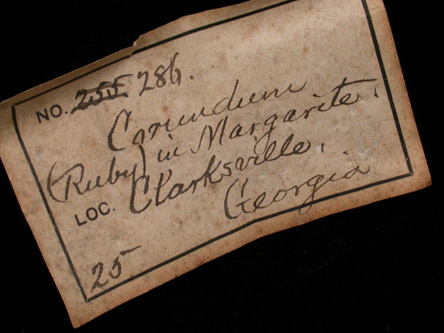 NO. 255 286.
Corundum
(Ruby) in Margarite.
LOC. Clarksville,
Georgia
25